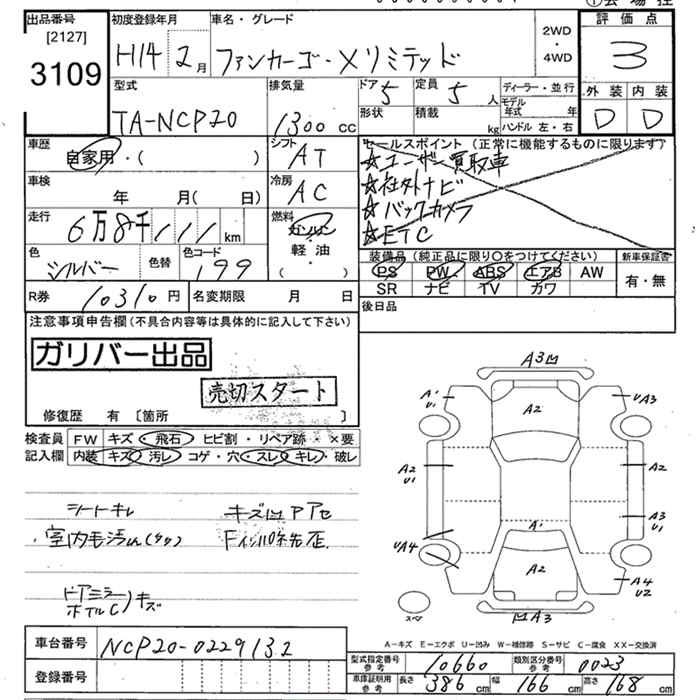 出品番号 初度登録年月 車名・グレード 評価点
[2127] 2WD
3109 H14 2月 ファンカーゴ・Xリミテッド ・ 3
4WD
型式 排気量 ドア 5 定員 5人 ディーラー・並行 外装 内装
TA-NCP20 1300cc 形状 積載 kg モデル年式 年 D D
ハンドル 左・右
車歴 シフト セールスポイント(正常に機能するものに限ります)
自家用・( ) AT ☆ユーザー買取車
車検 冷房 ☆社外ナビ
年 月( 日) AC ☆バックカメラ
走行 燃料 ☆ETC
6万8千 km ガソリン
色 色替 色コード 軽油 装備品(純正品に限り○をつけてください) 新車保証書
シルバー 199 ( ) PS PW ABS エアB AW 有・無
SR ナビ TV カワ
R券 10310円 名変期限 月 日 後日品
注意事項申告欄(不具合内容等は具体的に記入して下さい)
ガリバー出品
売切スタート
修復歴 有 〔箇所 〕
検査員 FW キズ・飛石・ヒビ割・リペア跡・×要
記入欄 内装 キズ・汚レ・コゲ・穴・スレ・キレ・破レ
シートキレ キズ凹アアセ
ドアミラー キズ
ホイルC
A3凹
A1 U1 A2 UA3
A2 U1 A2
A1 A3 U1
UA4 A2 A4 U2
スペア 凹A3
A-キズ E-エクボ U-凹み W-補修跡 S-サビ C-腐食 XX-交換済
車台番号 NCP20-0229132
型式指定番号 参考 10660 類別区分番号 参考 0023
登録番号 車庫証明用 参考 長さ 386cm 幅 166cm 高さ 168cm